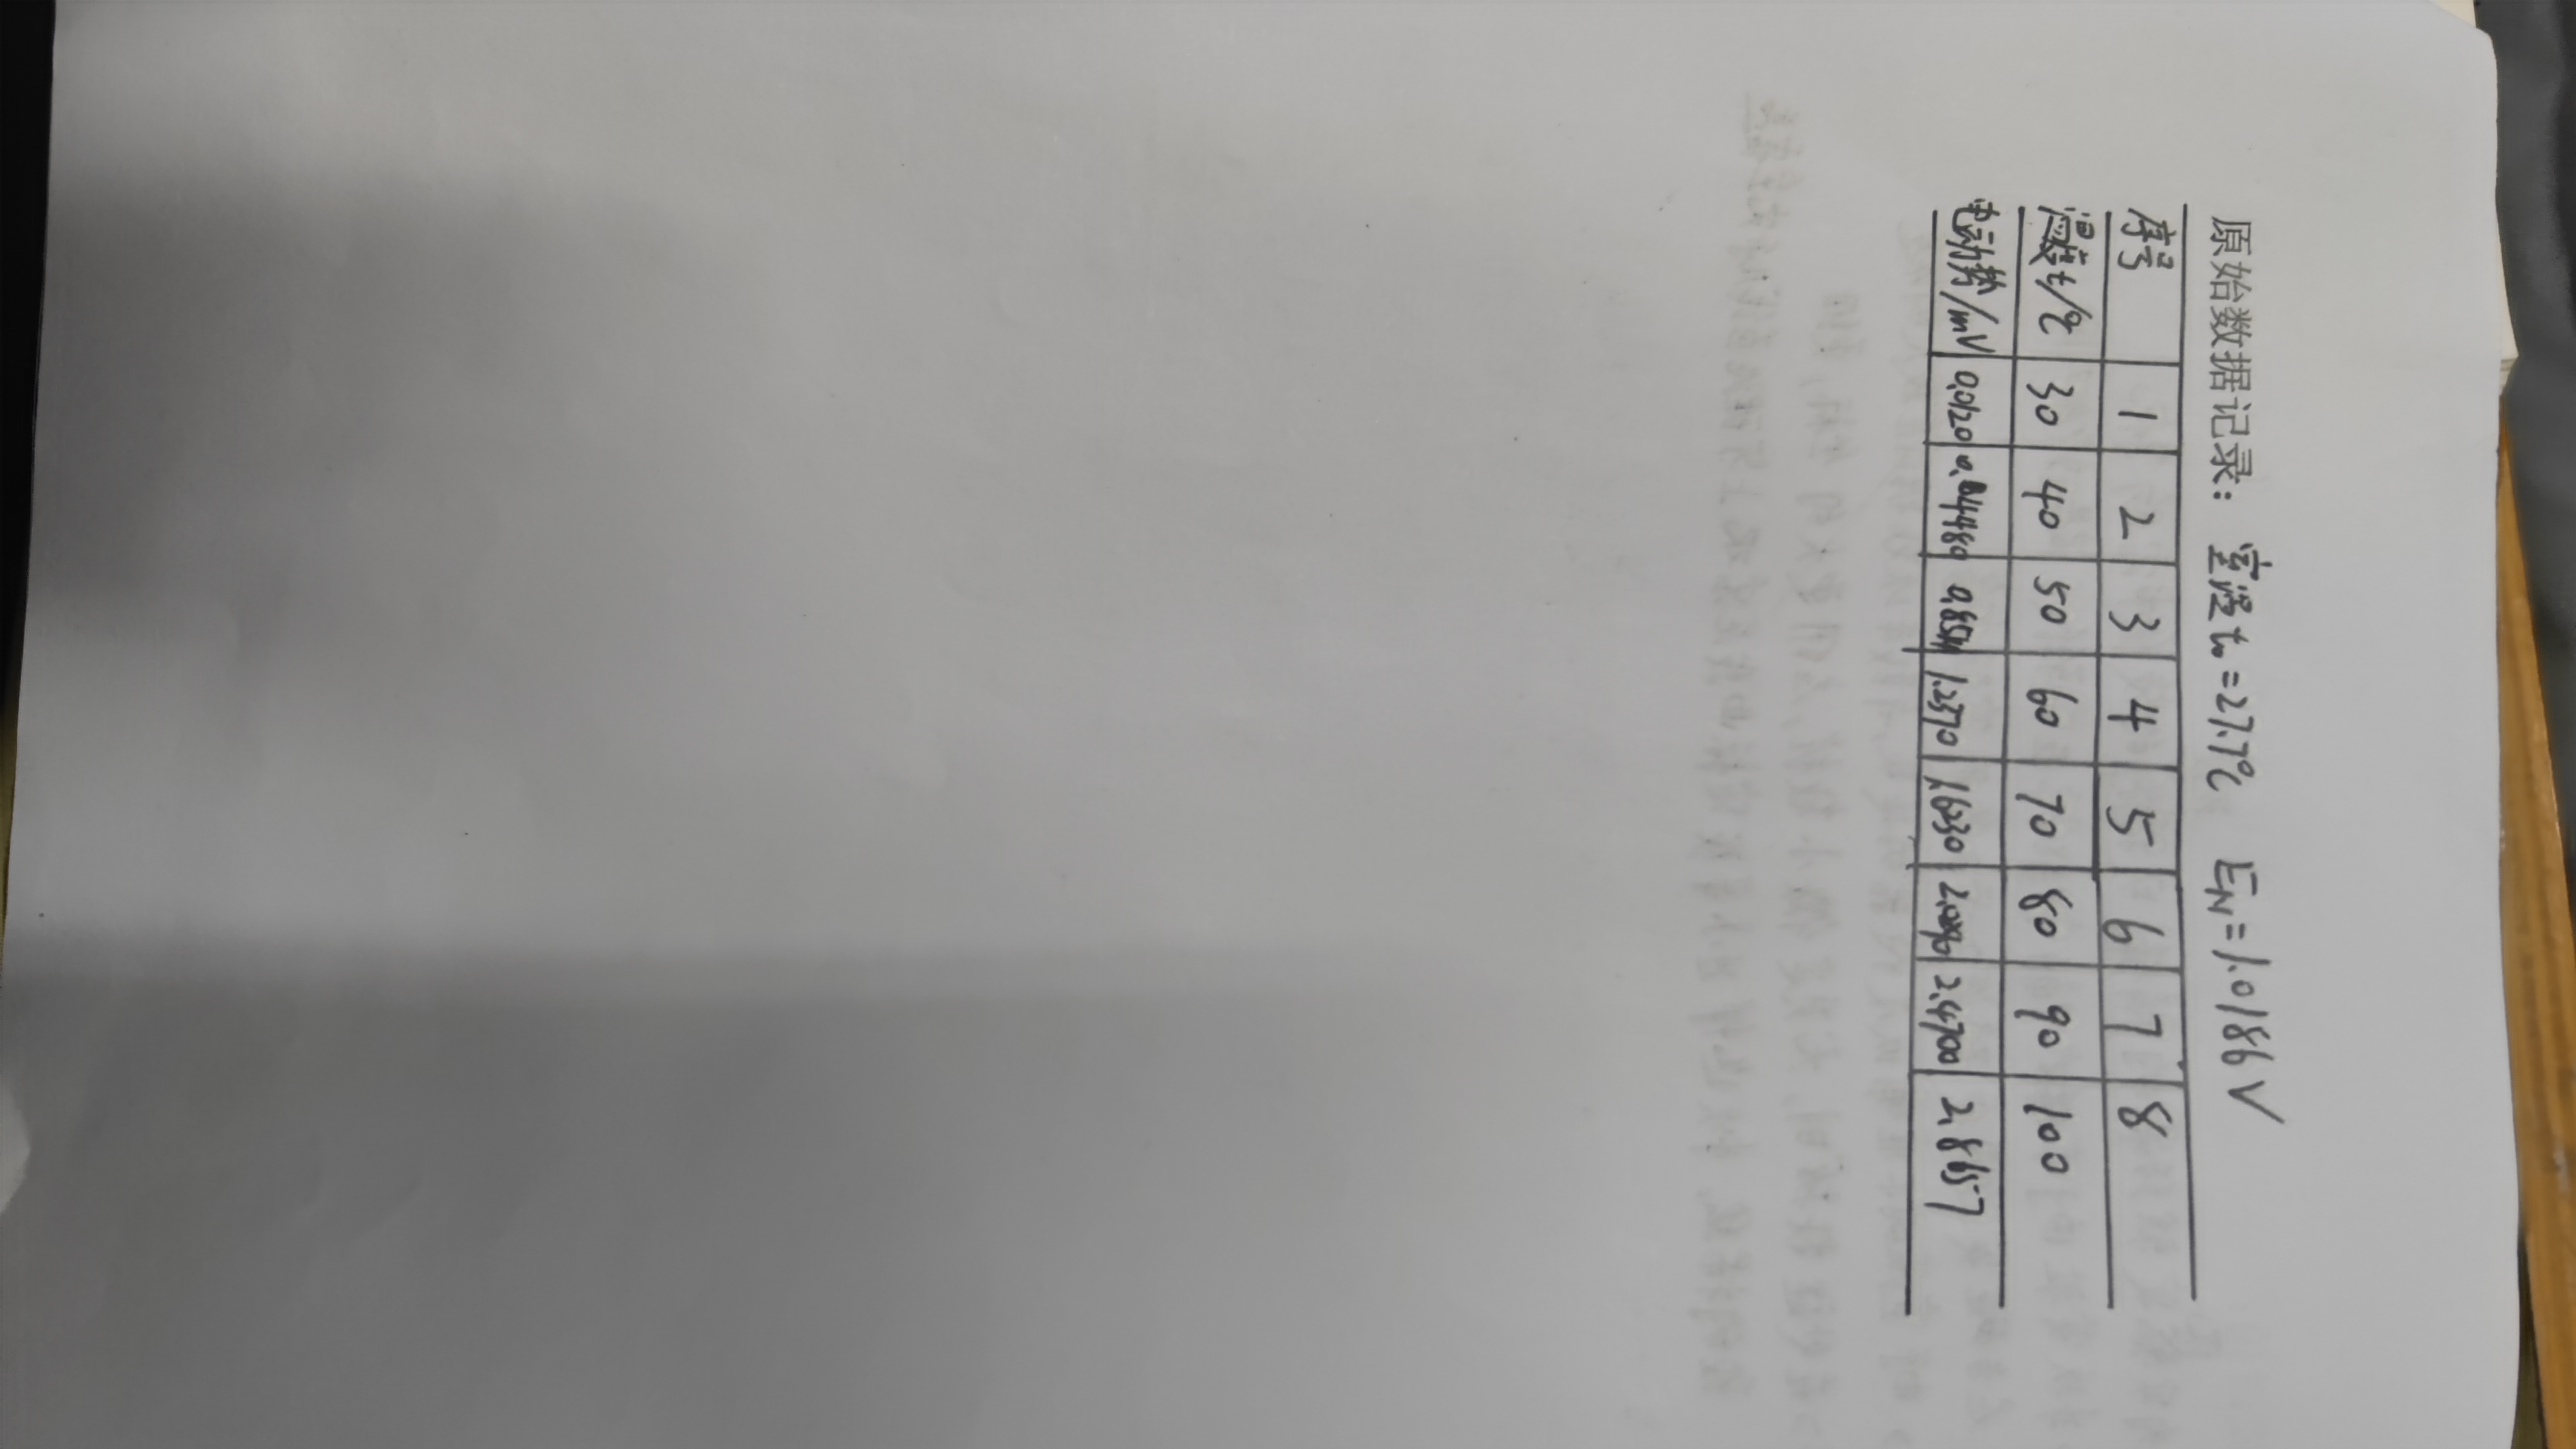 原始数据记录: 室温t₀=27.7℃ E_N=1.0186V
序号 1 2 3 4 5 6 7 8
温度t/℃ 30 40 50 60 70 80 90 100
电动势/mV 0.0120 1.2370 1.6230 2.4700 2.8657